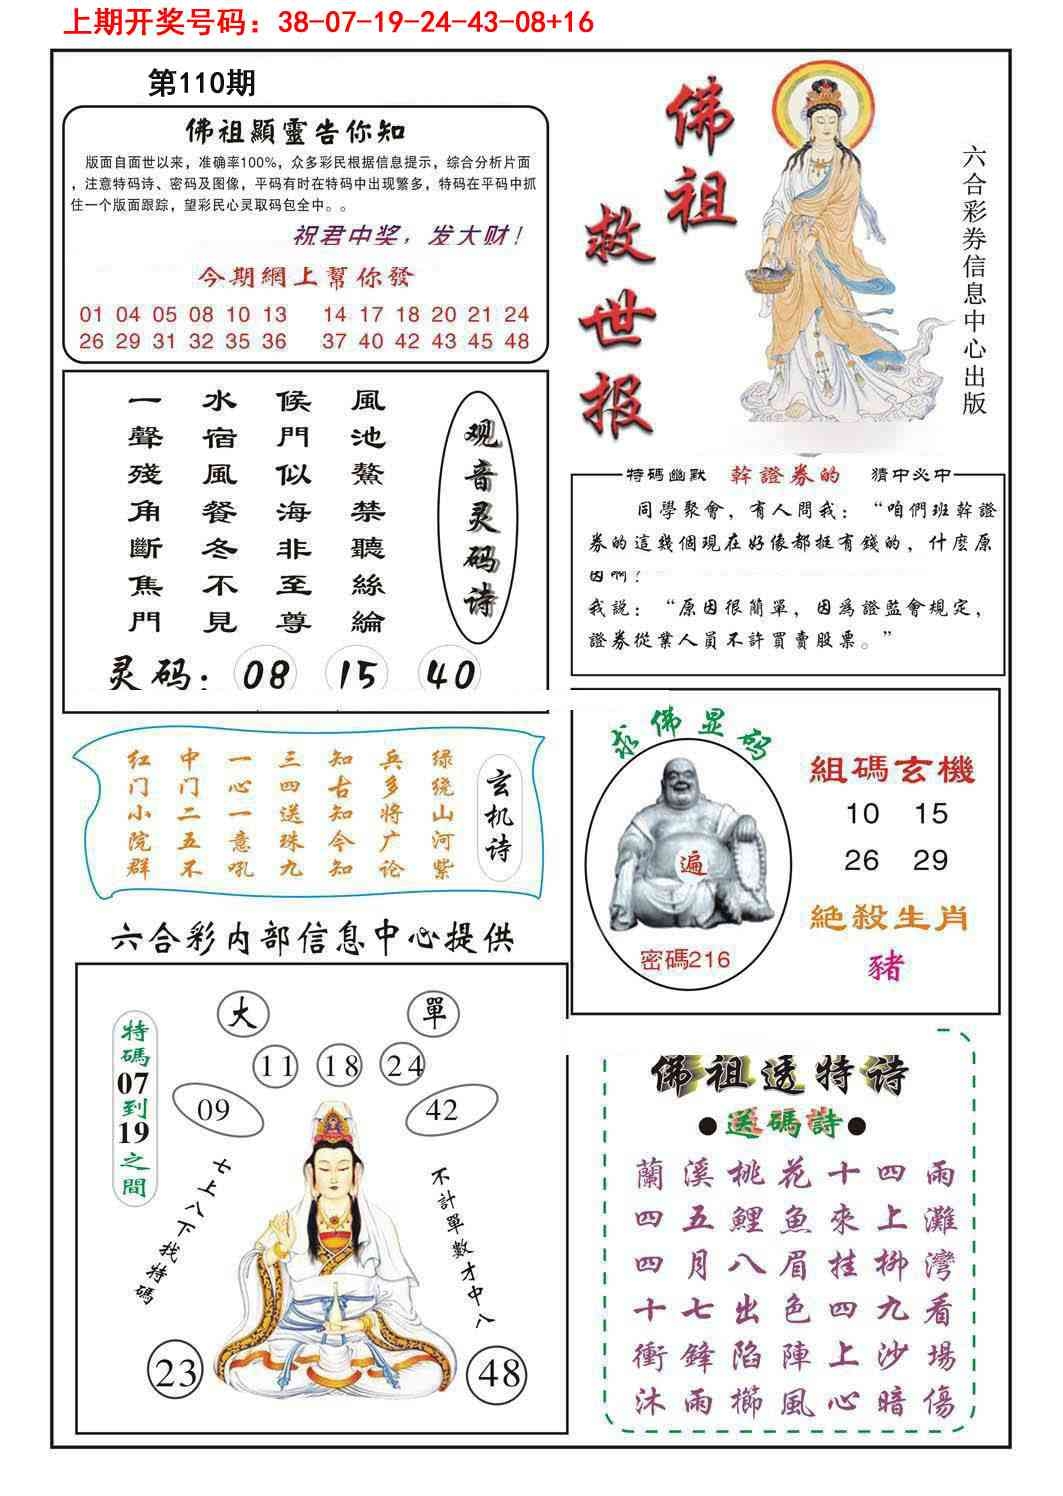 上期开奖号码：38-07-19-24-43-08+16
第110期
佛祖顯靈告你知
版面自面世以来，准确率100%，众多彩民根据信息提示，综合分析片面
，注意特码诗、密码及图像，平码有时在特码中出现繁多，特码在平码中抓
住一个版面跟踪，望彩民心灵取码包全中。。
祝君中奖，发大财！
今期網上幫你發
01 04 05 08 10 13 14 17 18 20 21 24
26 29 31 32 35 36 37 40 42 43 45 48
佛祖
救世报
六合彩券信息中心出版
观音灵码诗
風池鰲禁聽絲綸
候門似海非至尊
水宿風餐冬不見
一聲殘角斷焦門
灵码：08 15 40
特碼幽默 幹證券的 猜中必中
同學聚會，有人問我：“咱們班幹證
券的這幾個現在好像都挺有錢的，什麼原
因啊？
我説：“原因很簡單，因爲證監會規定，
證券從業人員不許買賣股票。”
玄机诗
绿绕山河紫
兵多将广论
知古知今知
三四送珠九
一心一意吼
中门二五不
红门小院群
求佛显码
遍
密碼216
組碼玄機
10 15
26 29
絕殺生肖
豬
六合彩内部信息中心提供
大 單
11 18 24
09 42
特碼07到19之間
七上八下找特碼
不計單數才中八
23 48
佛祖透特诗
●送碼詩●
蘭溪桃花十四雨
四五鯉魚來上灘
四月八眉挂柳灣
十七出色四九看
衝鋒陷陣上沙場
沐雨櫛風心暗傷